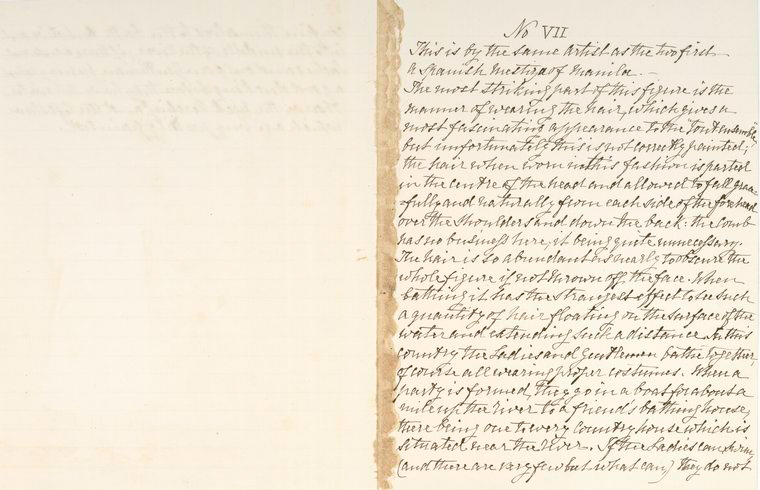 No VII
This is by the same artist as the two first
a Spanish mestiza of Manila. —
The most striking part of this figure is the
manner of wearing the hair, which gives a
most fascinating appearance to the "tout ensemble"
but unfortunately this is not correctly painted;
the hair when worn in this fashion is parted
in the centre of the head and allowed to fall grace
-fully and naturally from each side of the forehead
over the shoulders and down the back: the comb
has no business here, it being quite unnecessary.
The hair is so abundant as nearly to obscure the
whole figure if not thrown off the face. When
bathing it has the strangest effect to see such
a quantity of hair floating on the surface of the
water and extending such a distance. In this
country the Ladies and Gentlemen bathe together,
of course all wearing proper costumes. When a
party is formed, they go in a boat for about a
mile up the river to a friend's bathing house,
there being one to every country house which is
situated near the river. If the Ladies can swim
(and there are very few but what can) they do not